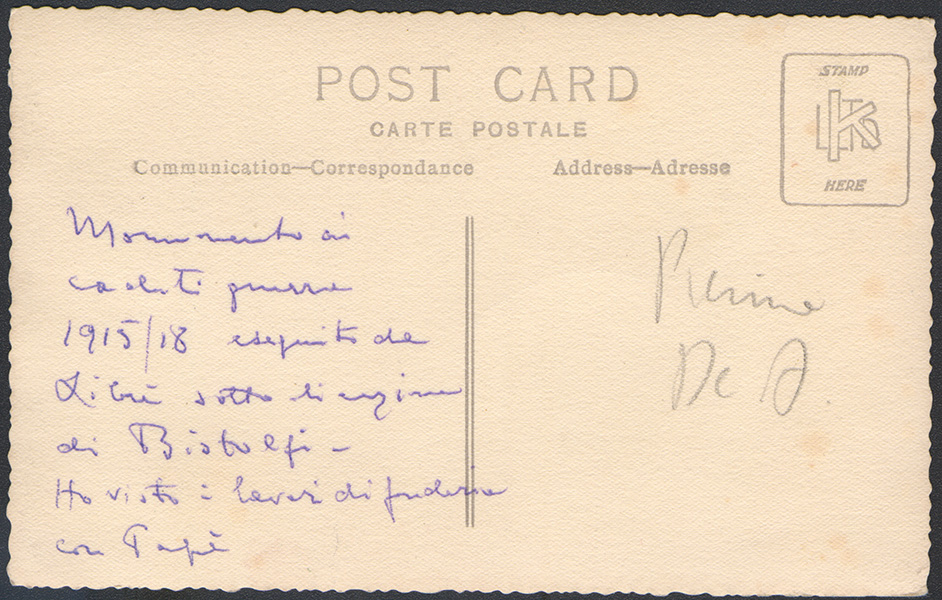 POST CARD
CARTE POSTALE
Communication—Correspondance
Address—Adresse
STAMP
HERE
Monumento ai
caduti guerra
1915/18 eseguito da
sotto direzione
di Bistolfi –
Ho visto i lavori di fonderia
con Papà
De A.